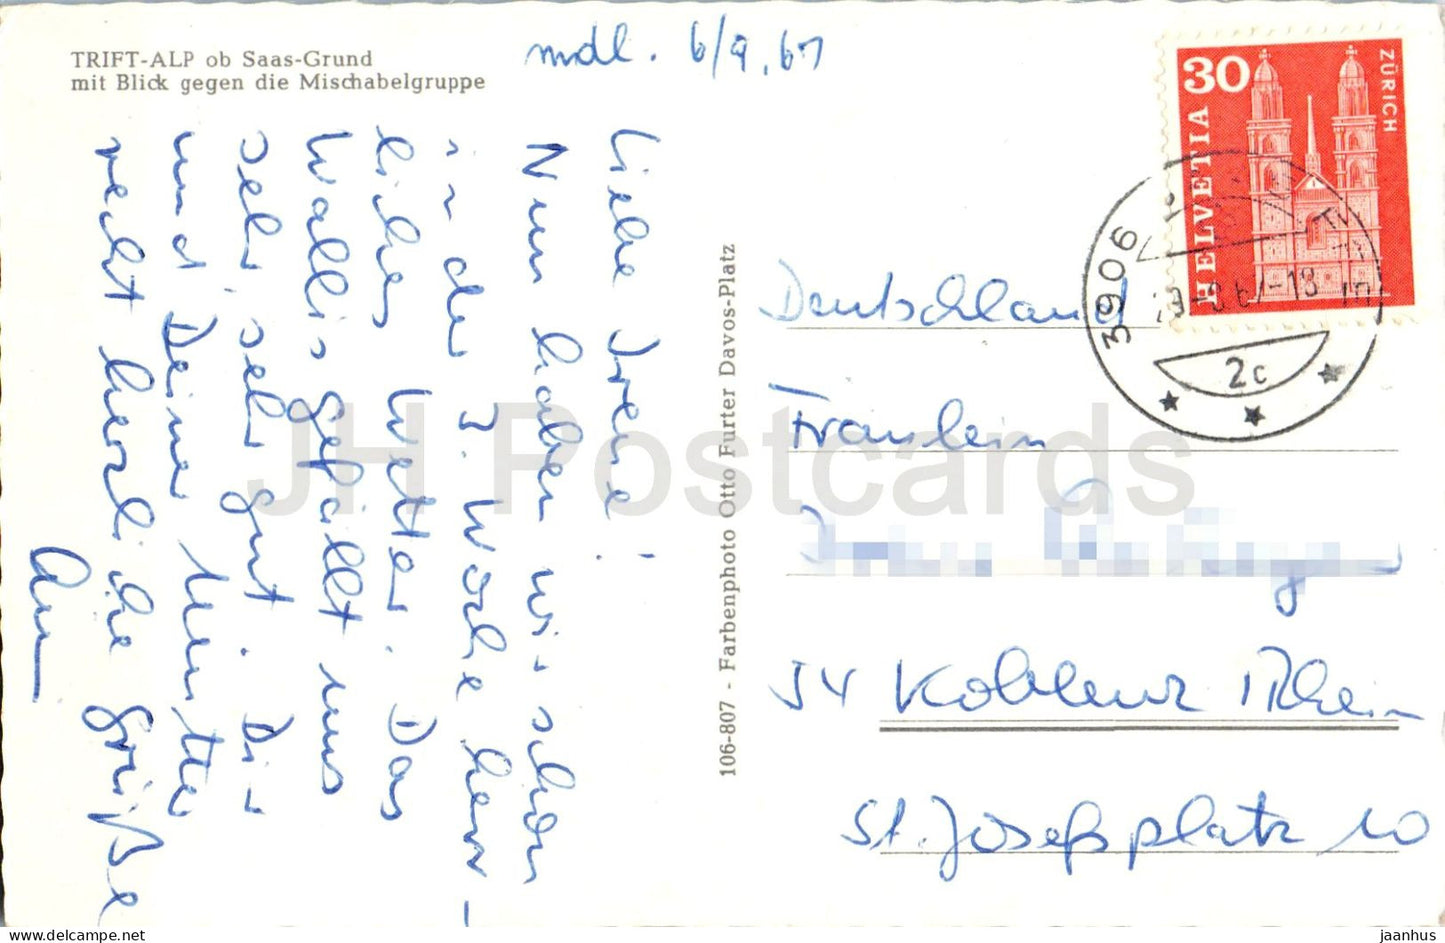 TRIFT-ALP ob Saas-Grund
mit Blick gegen die Mischabelgruppe
mdl. 6/9.67
Liebe Irene!
Nun haben wir schon
in der 3. Woche herr-
liches Wetter. Das
Wallis gefällt uns
sehr, sehr gut. Dir
und Deiner Mutter
recht herzliche Grüße
106-807 - Farbenphoto Otto Furter Davos-Platz
HELVETIA
30
ZÜRICH
3906
2c
Deutschland
Fräulein
54 Koblenz Rhein
St. Josefsplatz 10
JH Postcards
www.delcampe.net
jaanhus